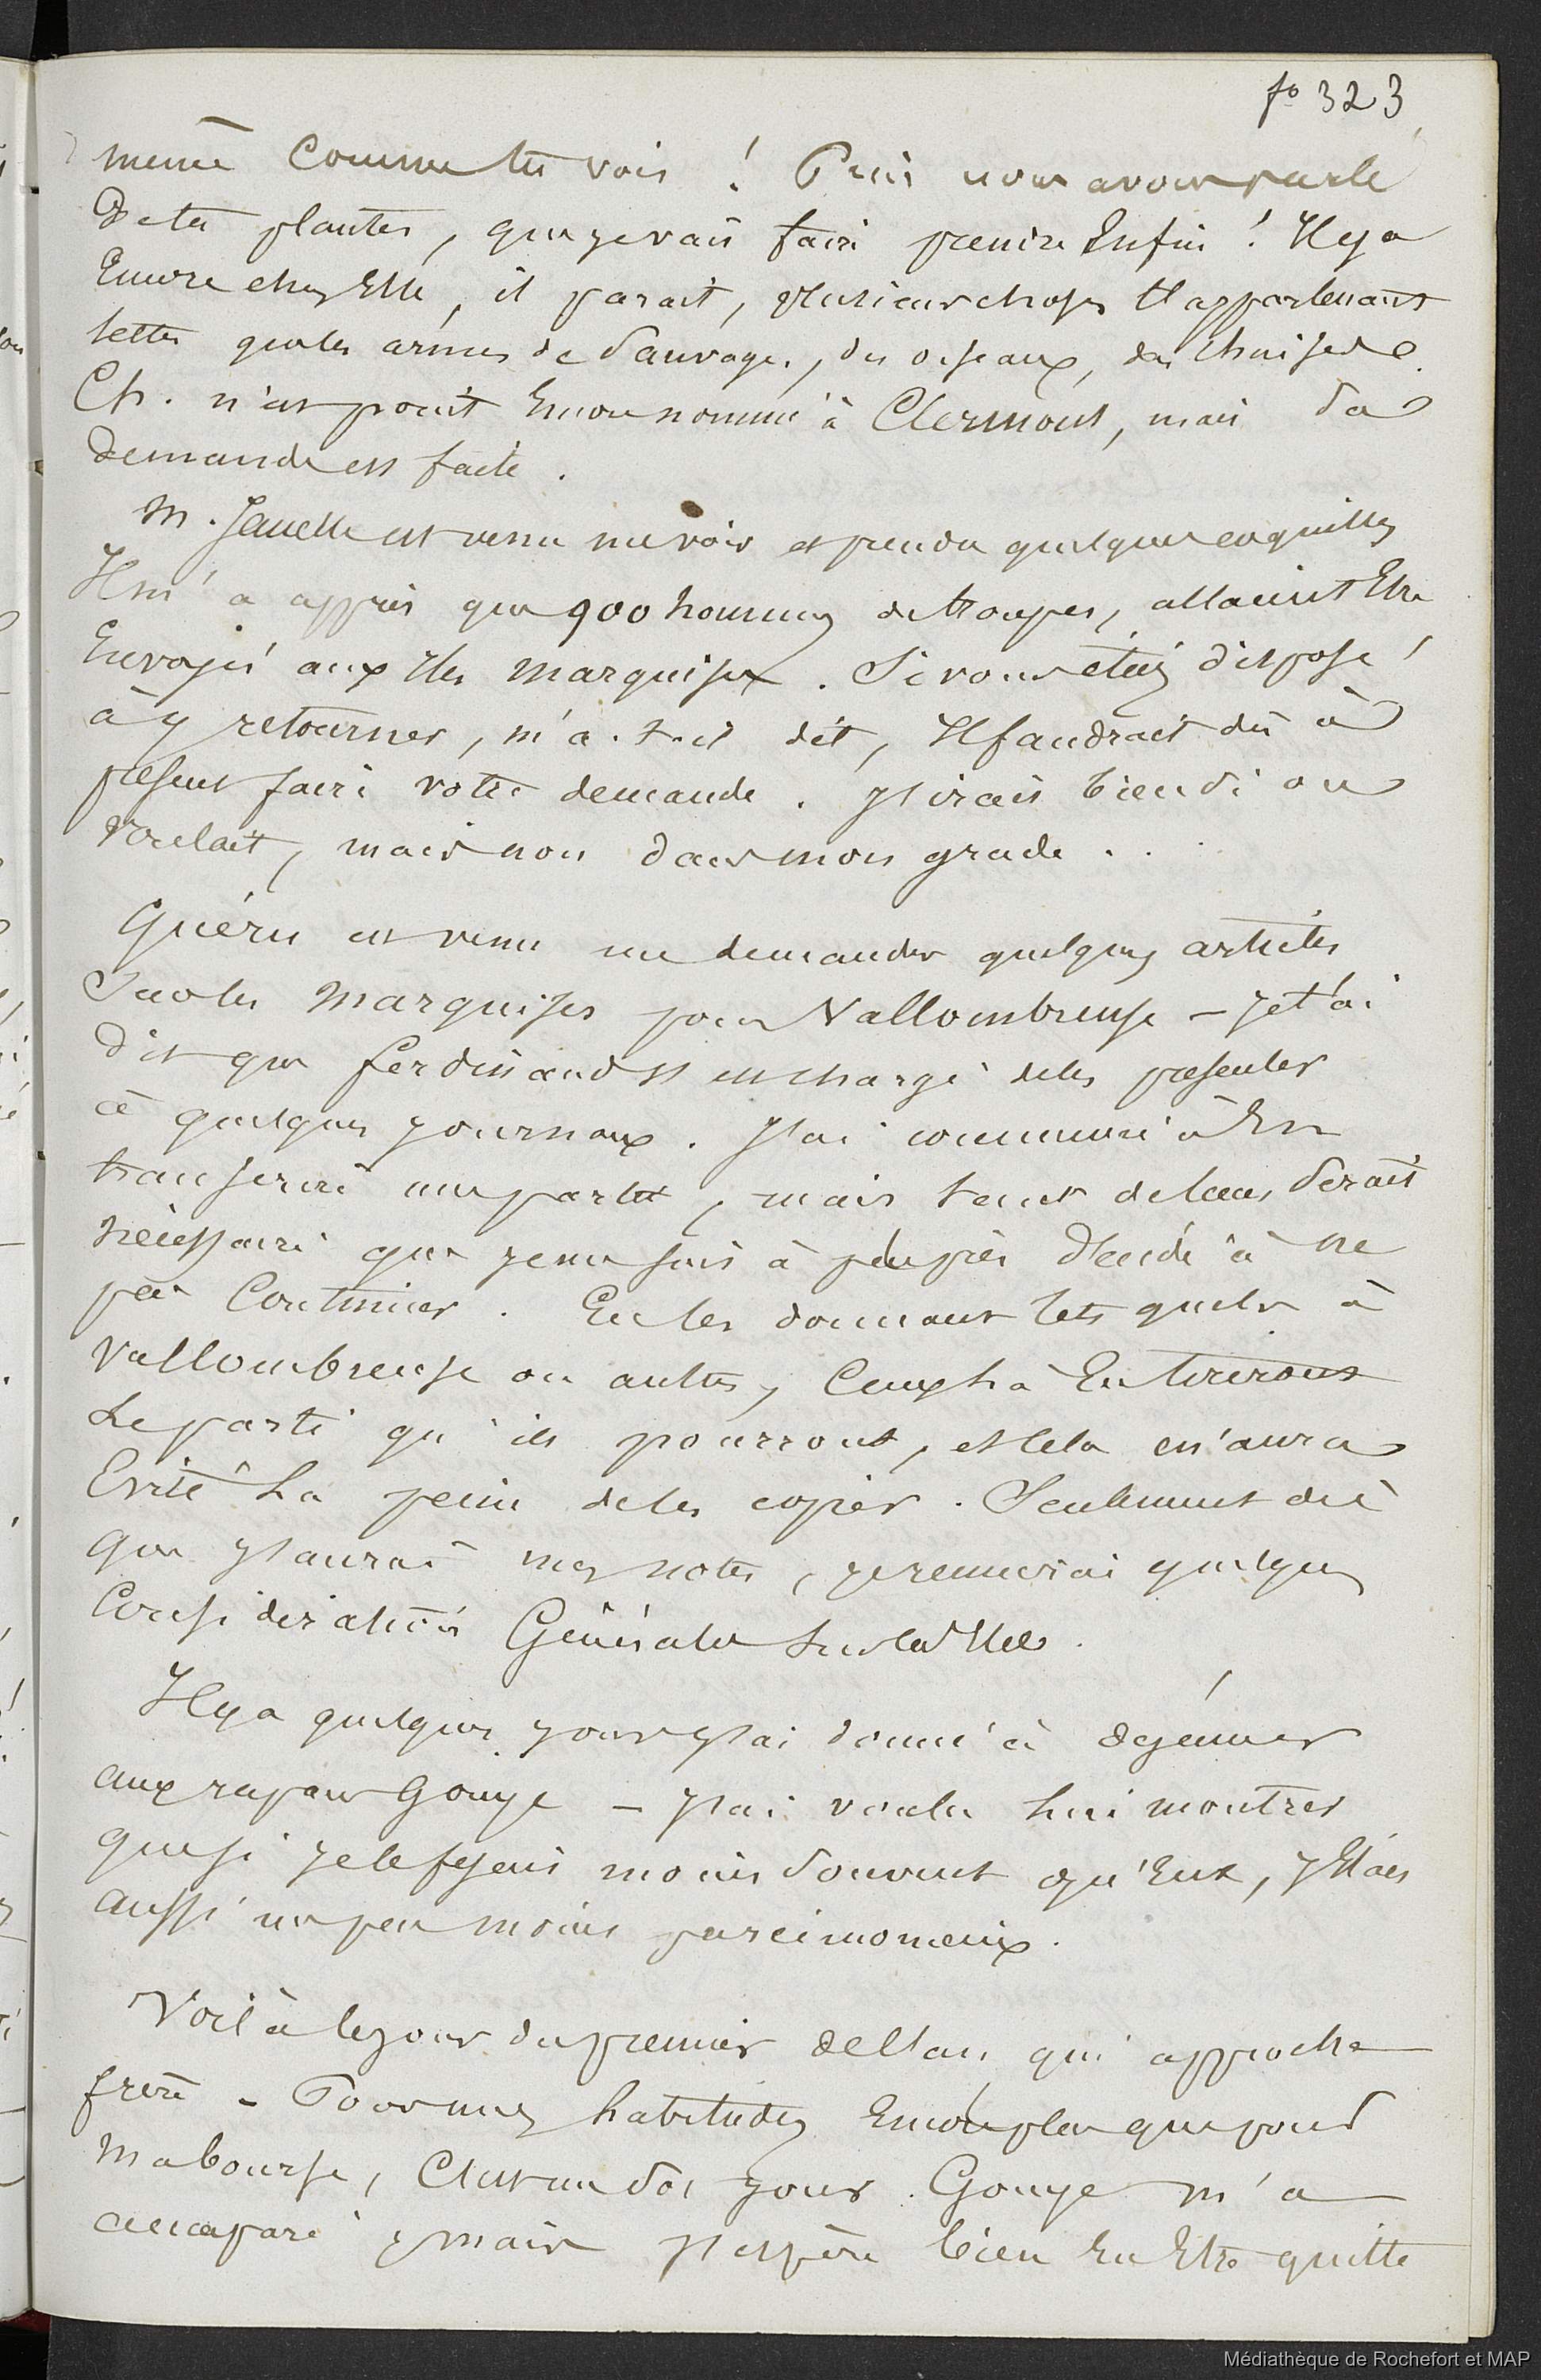 fo 323
même comme tu vois ! Puis nous avons parlé
de tes plantes, que je vais faire prendre Enfin ! Il y a
Encore chez Elle, il parait, plusieurs choses t'appartenant
telles que les armes de Sauvages, des oiseaux, des chaises &
Ch. n'est point Encore nommé à Clermont, mais Sa
demande est faite.
M. Janelle est venu me voir et prendre quelques coquilles
Il m'a appris que 900 hommes de troupes, allaient Etre
Envoyés aux Iles Marquises. Si vous étiez disposé
à y retourner, m'a-t-il dit, Il faudrait dès à
présent faire votre demande. J'irais bien Si on
voulait, mais non dans mon grade ...
Guérin est venu me demander quelques articles
Sur les Marquises pour Vallombreuse - Je t'ai
dit que ferdinand S'est chargé de les présenter
à quelques journaux. J'ai commencé à En
transcrire une partie, mais tant de tems Serait
nécessaire que je me suis à peu près décidé à ne
pas Continuer. En les donnant tels quels à
Vallombreuse ou autres, Ceux là En tireront
Le parti qu'ils pourront, et Cela m'aura
Evité La peine de les copier. Seulement dès
que J'aurai mes notes, je remuerai quelques
Considérations Générales Sur les Iles.
Il y a quelques jours J'ai donné à déjeuner
aux rapaces Gouye - J'ai voulu Lui montrer
que si je le fesais moins Souvent qu'Eux, J'Etais
aussi un peu moins parcimonieux.
Voilà le jour du premier de l'an qui approche
frère - Pour mes habitudes Encore plus que pour
Ma bourse, C'est un Sot jour. Gouye m'a
accaparé, mais J'espère bien En Etre quitte
Médiathèque de Rochefort et MAP